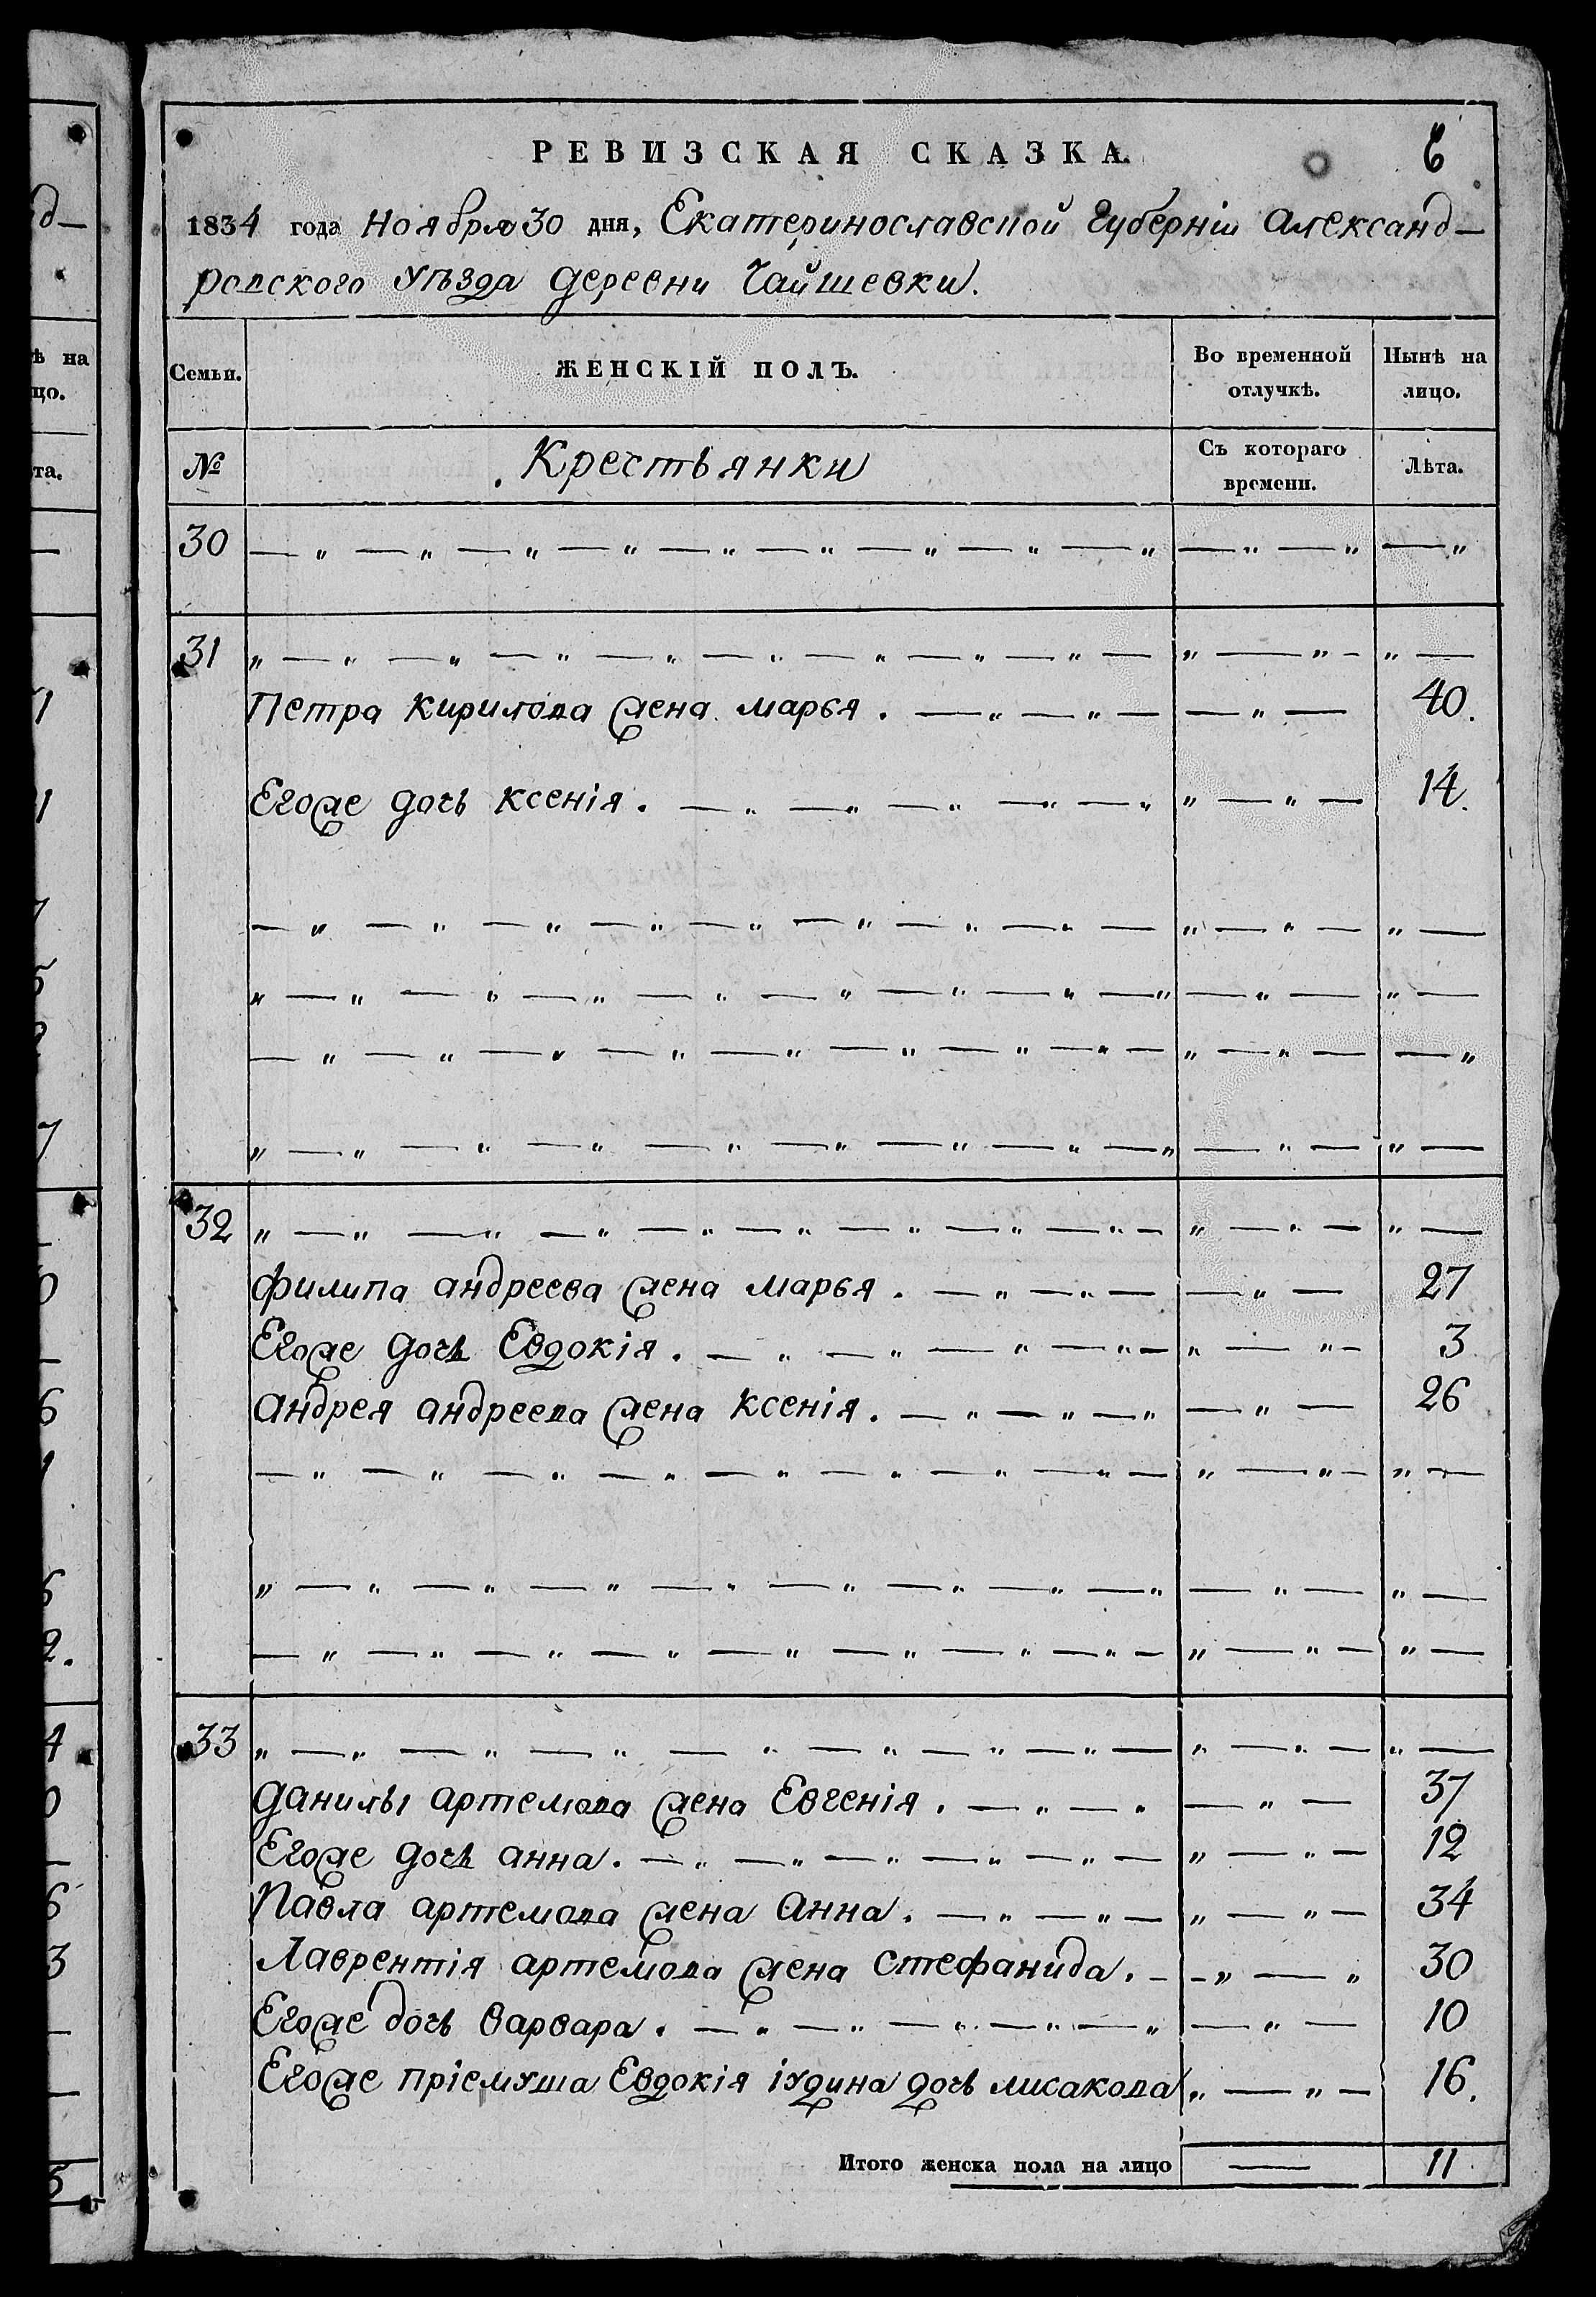 РЕВИЗСКАЯ СКАЗКА.
1834 года Ноября 30 дня, Екатеринославской Губерніи Александ-
ровского Уѣзда деревни
Семьи. ЖЕНСКІЙ ПОЛЪ. Во временной отлучкѣ. Нынѣ на лицо.
№ Крестьянки Съ котораго времени. Лѣта.
30
31
Петра Кирилова жена Марья. 40.
Егоже дочь Ксенія. 14.
32
Филипа Андреева жена Марья. 27
Егоже дочь Евдокія. 3
Андрея Андреева жена Ксенія. 26
33
Данилы Артемова жена Евгенія. 37
Егоже дочь Анна. 12
Павла Артемова жена Анна. 34
Лаврентія Артемова жена Стефанида. 30
Егоже дочь Варвара. 10
Егоже пріемуша Евдокія Іудина дочь Лисакова 16.
Итого женска пола на лицо — 11
ѣ на
цо.
та.